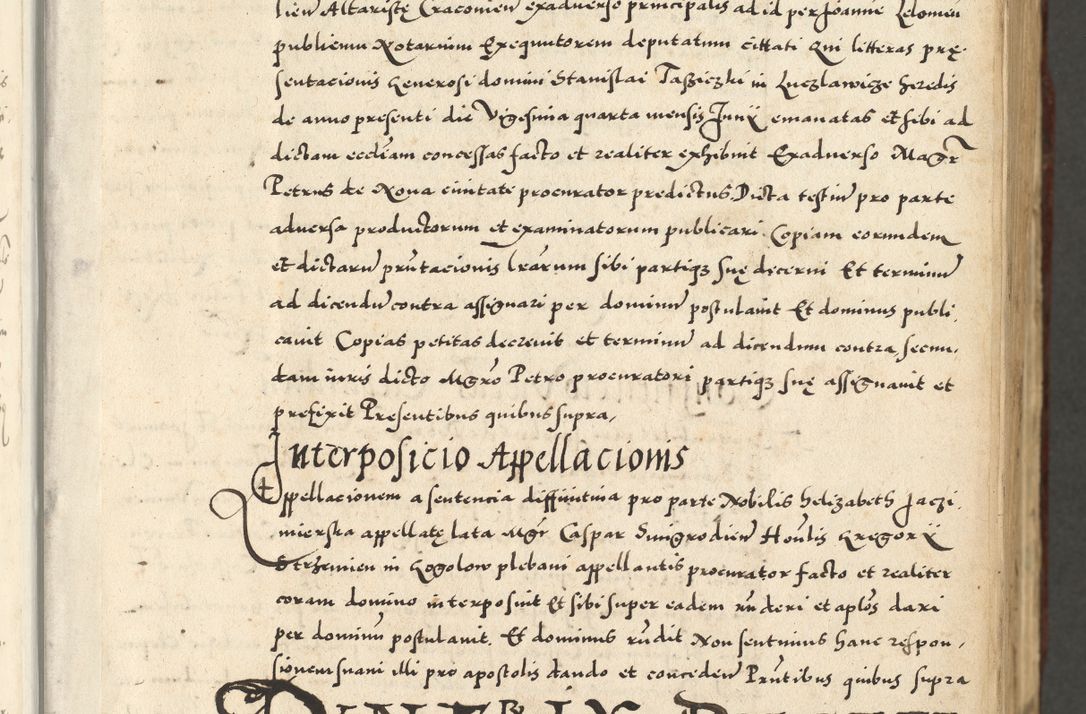 lien Altaristę Cracovien exadverso principalis ad id per Joannem Lelowien
publicum Notarium Exequutorem deputatum cittati Qui litteras prę.
sentacionis Generosi domini Stanislai Tasziczki in Luczlawicze heredis
de anno presenti die Vigesima quarta mensis Junÿ emanatas et sibi ad
dictam eccliam concessas facto et realiter exhibuit Exadverso Magr
Petrus de Nova civitate procurator predictus Dicta testiū pro parte
adversa productorum et examinatorum publicari Copiam eorundem
et dictarū prntacionis lrarum sibi partiqz suę decerni Et terminū
ad dicendū contra assignari per dominū postulavit Et dominus publi.
cavit Copias petitas decrevit et terminū ad dicendum contra, secun.
dam iuris dicto Mgro Petro procuratori partiqz suę assignavit et
prefixit Presentibus quibus supra,
Interposicio Appellacionis
Appellacionem a sentencia diffinitiva pro parte Nobilis Helizabeth Jaczi.
mierska appellatę lata Mgr Caspar Smigrodien Honlis Gregorÿ
Strzemien in Gogolow plebani appellantis procurator facto et realiter
coram domino interposuit Et sibi super eadem rnderi et aplos dari
per dominū postulavit. Et dominus rndit Non sentimus hanc respon,
sionem suam illi pro apostolis dando et conceden Prntibus quibus supra